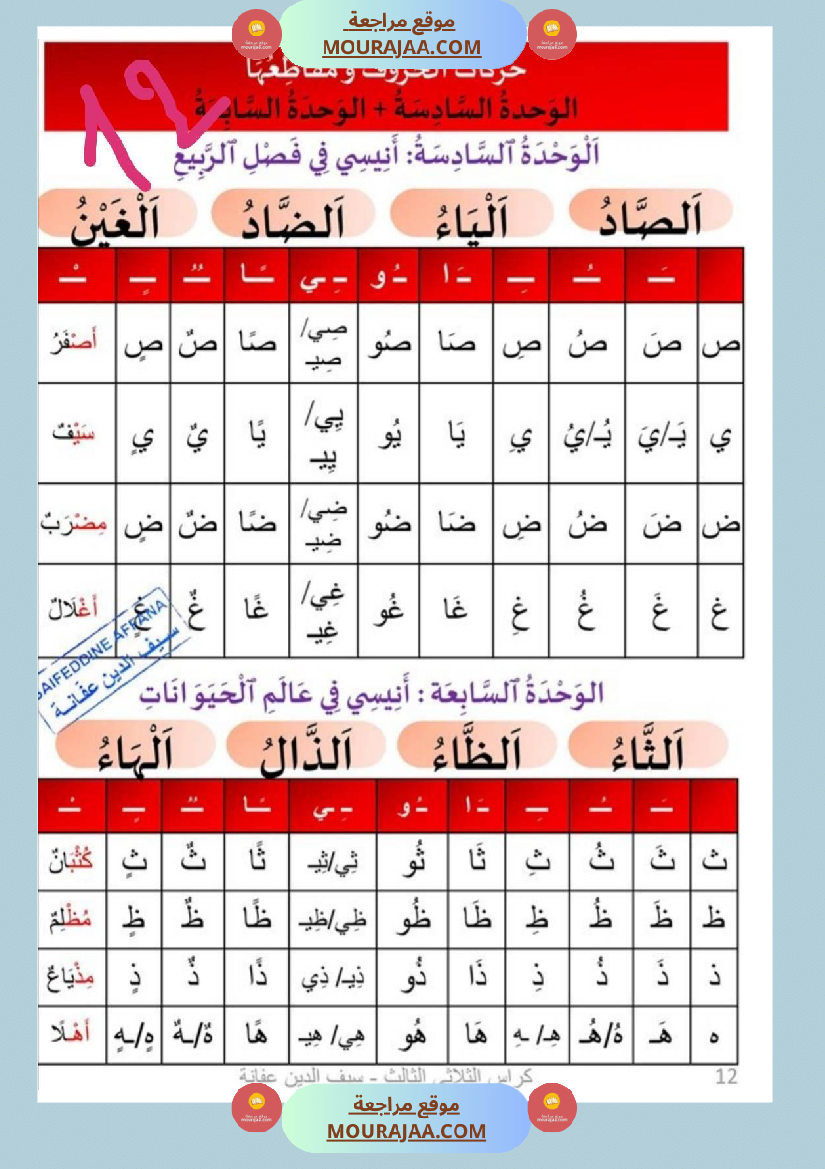 موقع مراجعة
MOURAJAA.COM
حركات الحروف و مقاطعُهَا
الوَحدةُ السَّادِسَةُ + الوَحدَةُ السَّابِعَةُ
12
اَلْوَحْدَةُ ٱلسَّادِسَةُ: أَنِيسِي فِي فَصْلِ ٱلرَّبِيعِ
اَلصَّادُ اَلْيَاءُ اَلضَّادُ اَلْغَيْنُ
ـَ ـُ ـِ ـَا ـُو ـِي ـًا ـٌ ـٍ ـْ
ص صَ صُ صِ صَا صُو صِي/صِيـ صًا صٌ صٍ أَصْفَرُ
ي يَـ/يَ يُـ/يُ يِ يَا يُو يِي/يِيـ يًا يٌ يٍ سَيْفٌ
ض ضَ ضُ ضِ ضَا ضُو ضِي/ضِيـ ضًا ضٌ ضٍ مِضْرَبٌ
غ غَ غُ غِ غَا غُو غِي/غِيـ غًا غٌ غٍ أَغْلَالٌ
SAIFEDDINE AFFANA
سيف الدين عفانة
الوَحْدَةُ ٱلسَّابِعَة : أَنِيسِي فِي عَالَمِ ٱلْحَيَوَانَاتِ
اَلثَّاءُ اَلظَّاءُ اَلذَّالُ اَلْهَاءُ
ـَ ـُ ـِ ـَا ـُو ـِي ـًا ـٌ ـٍ ـْ
ث ثَ ثُ ثِ ثَا ثُو ثِي/ثِيـ ثًا ثٌ ثٍ كُثْبَانٌ
ظ ظَ ظُ ظِ ظَا ظُو ظِي/ظِيـ ظًا ظٌ ظٍ مُظْلِمٌ
ذ ذَ ذُ ذِ ذَا ذُو ذِيـ/ذِي ذًا ذٌ ذٍ مِذْيَاعٌ
ه هَـ هُ/هُـ هِـ/ـهِ هَا هُو هِي/هِيـ هًا ةٌ/ـهٌ هٍ/ـهٍ أَهْلًا
12 كراس الثلاثي الثالث - سيف الدين عفانة
موقع مراجعة
MOURAJAA.COM